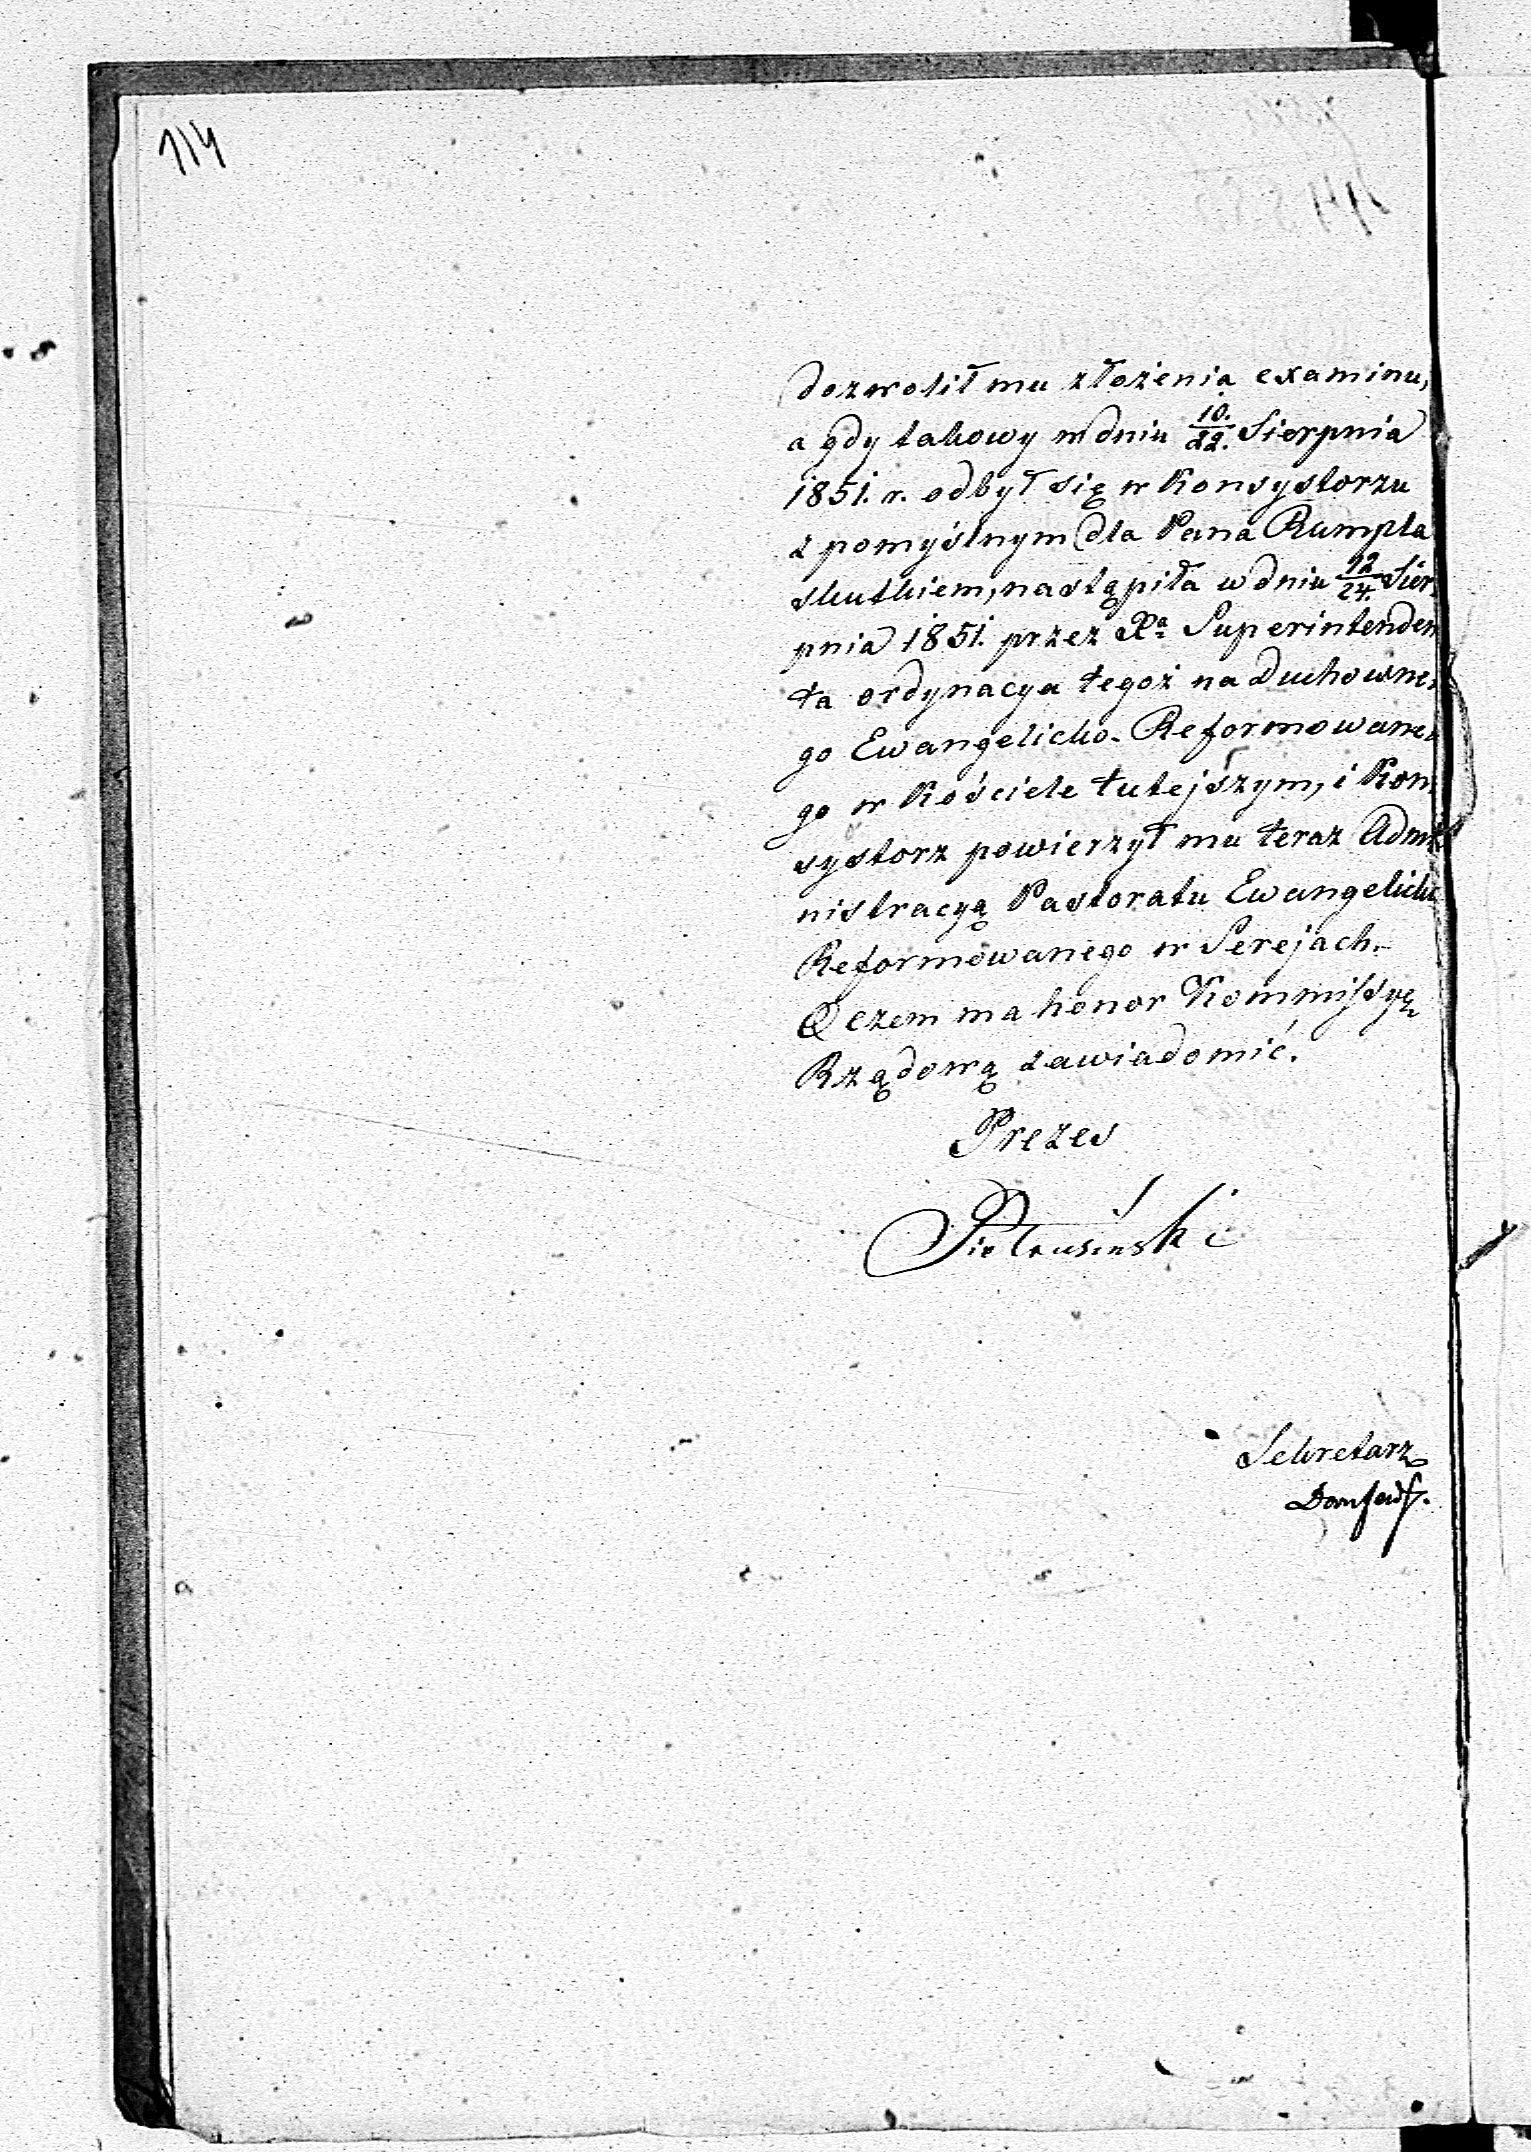 114
dozwolił mu złożenia examinu,
a gdy takowy w dniu 10./22. Sierpnia
1851. r. odbył się w Konsystorzu
z pomyślnym dla Pana Rumpla
skutkiem, nastąpiła w dniu 12/24. Sier,
pnia 1851. przez Xa Superintenden
ta ordynacya tegoż na Duchowne,
go Ewangelicko-Reformowane,
go w Kościele tutejszym, i Kon,
systorz powierzył mu teraz Admi
nistracyą Pastoratu Ewangelicko
Reformowanego w Serejach.-
O czem ma honor Kommissyę
Rządową zawiadomić.
Prezes
Piotrusiński
Sekretarz